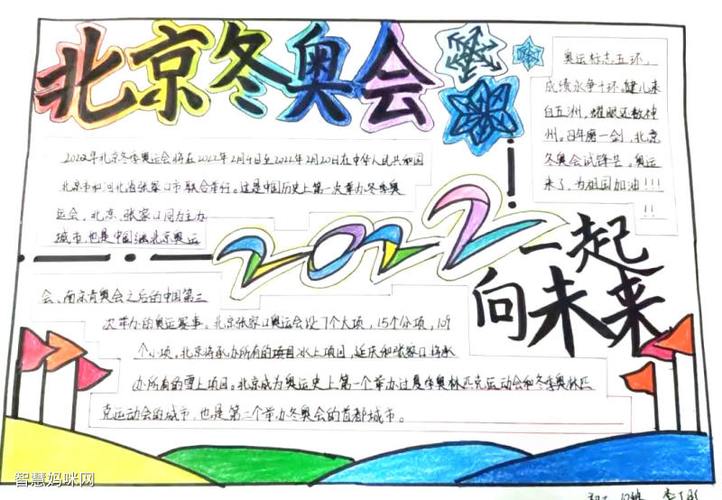 北京冬奥会
奥运标志五环，
成绩永争十环。健儿来
自五洲，耀眼还数神
州。四年磨一剑，北京
冬奥会试锋芒，奥运
来了，为祖国加油！！！
！！
2022年北京冬季奥运会将在2022年2月4日至2022年2月20日在中华人民共和国
北京市和河北省张家口市联合举行。这是中国历史上第一次举办冬季奥
运会，北京、张家口同为主办
城市，也是中国继北京奥运
2022
一起
向未来
会、南京青奥会之后的中国第三
次举办的奥运赛事。北京张家口奥运会设7个大项，15个分项，109
个小项。北京将承办所有的项目冰上项目，延庆和张家口将承
办所有的雪上项目。北京成为奥运史上第一个举办过夏季奥林匹克运动会和冬季奥林匹
克运动会的城市，也是第二个举办冬奥会的首都城市。
智慧妈咪网